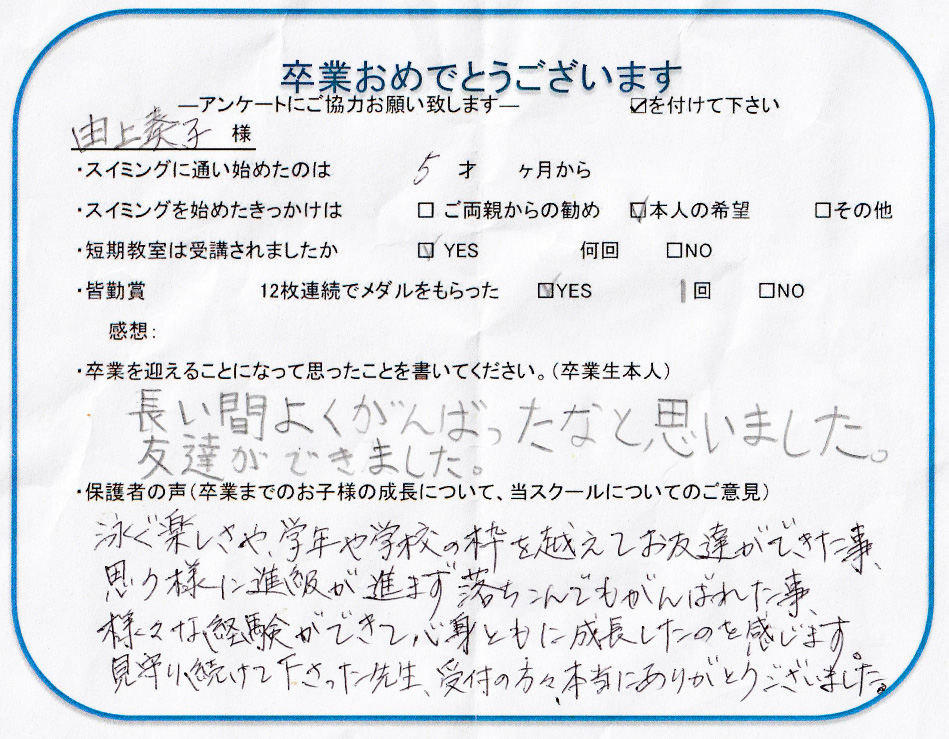 卒業おめでとうございます
―アンケートにご協力お願い致します― ☑を付けて下さい
由上葵子 様
・スイミングに通い始めたのは 5 才 ヶ月から
・スイミングを始めたきっかけは □ ご両親からの勧め ☑本人の希望 □その他
・短期教室は受講されましたか ☑ YES 何回 □NO
・皆勤賞 12枚連続でメダルをもらった ☑YES 1回 □NO
感想:
・卒業を迎えることになって思ったことを書いてください。(卒業生本人)
長い間よくがんばったなと思いました。
友達ができました。
・保護者の声(卒業までのお子様の成長について、当スクールについてのご意見)
泳ぐ楽しさや、学年や学校の枠を越えてお友達ができた事、
思う様に進級が進まず落ちこんでもがんばれた事、
様々な経験ができて心身ともに成長したのを感じます。
見守り続けて下さった先生、受付の方々、本当にありがとうございました。